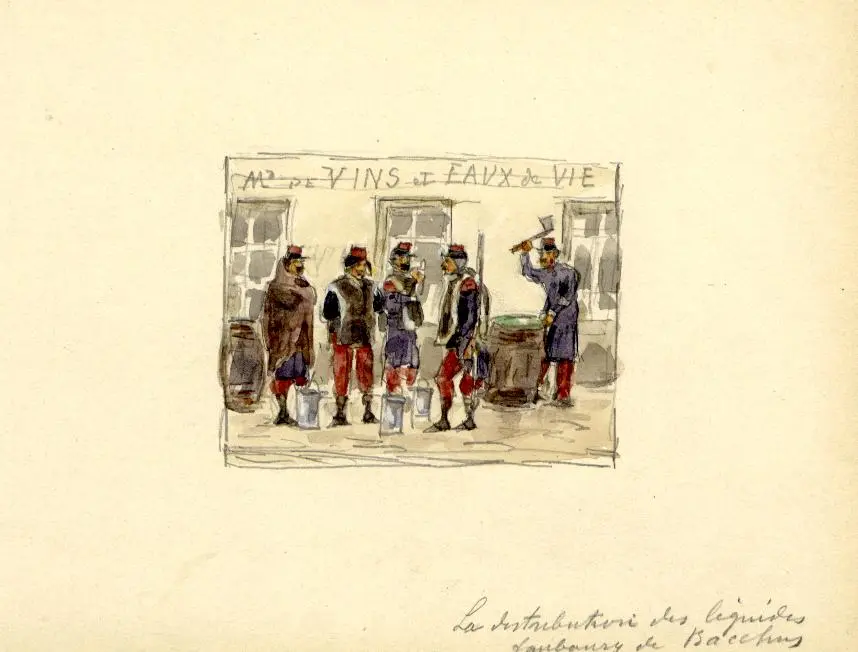 Md DE VINS et EAUX de VIE
La distribution des liquides
faubourg de Bacchus